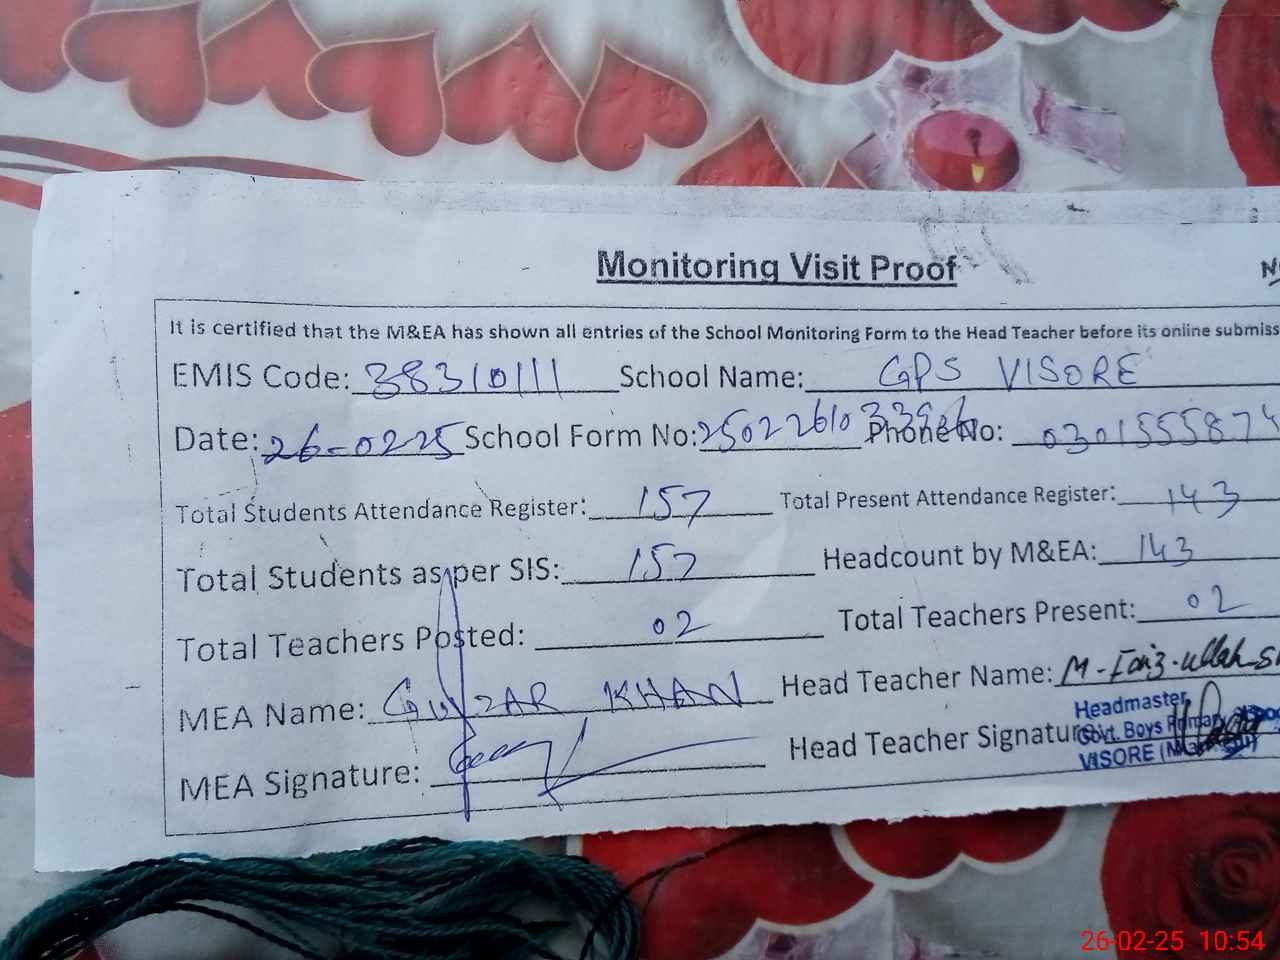 Monitoring Visit Proof
It is certified that the M&EA has shown all entries of the School Monitoring Form to the Head Teacher before its online submiss
EMIS Code: 38310111 School Name: GPS VISORE
Date: 26-0225 School Form No: Phone No: 0301555874
Total Students Attendance Register: 157 Total Present Attendance Register: 143
Total Students as per SIS: 157 Headcount by M&EA: 143
Total Teachers Posted: 02 Total Teachers Present: 02
MEA Name: GULZAR KHAN Head Teacher Name: M-Faiz-ullah
MEA Signature: Head Teacher Signature
Headmaster
Govt. Boys Primary
VISORE
26-02-25 10:54